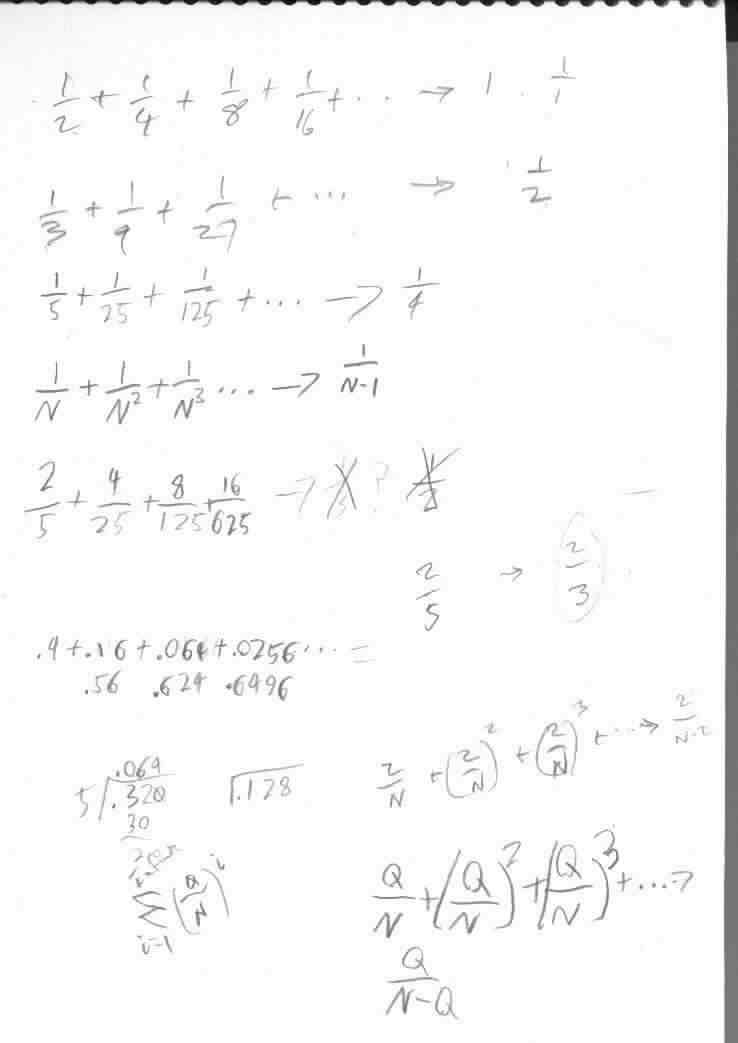 1/2 + 1/4 + 1/8 + 1/16 + ... → 1 1/1
1/3 + 1/9 + 1/27 + ... → 1/2
1/5 + 1/25 + 1/125 + ... → 1/4
1/N + 1/N² + 1/N³ ... → 1/(N-1)
2/5 + 4/25 + 8/125 + 16/625 → ?
2/5 → 2/3
.4+.16+.064+.0256... =
.56 .624 .6496
2/N + (2/N)² + (2/N)³ + ... → 2/(N-2)
.064
5 √.320 √.128
30
20
∑ i=1 (Q/N)^i
Q/N + (Q/N)² + (Q/N)³ + ... →
Q/(N-Q)